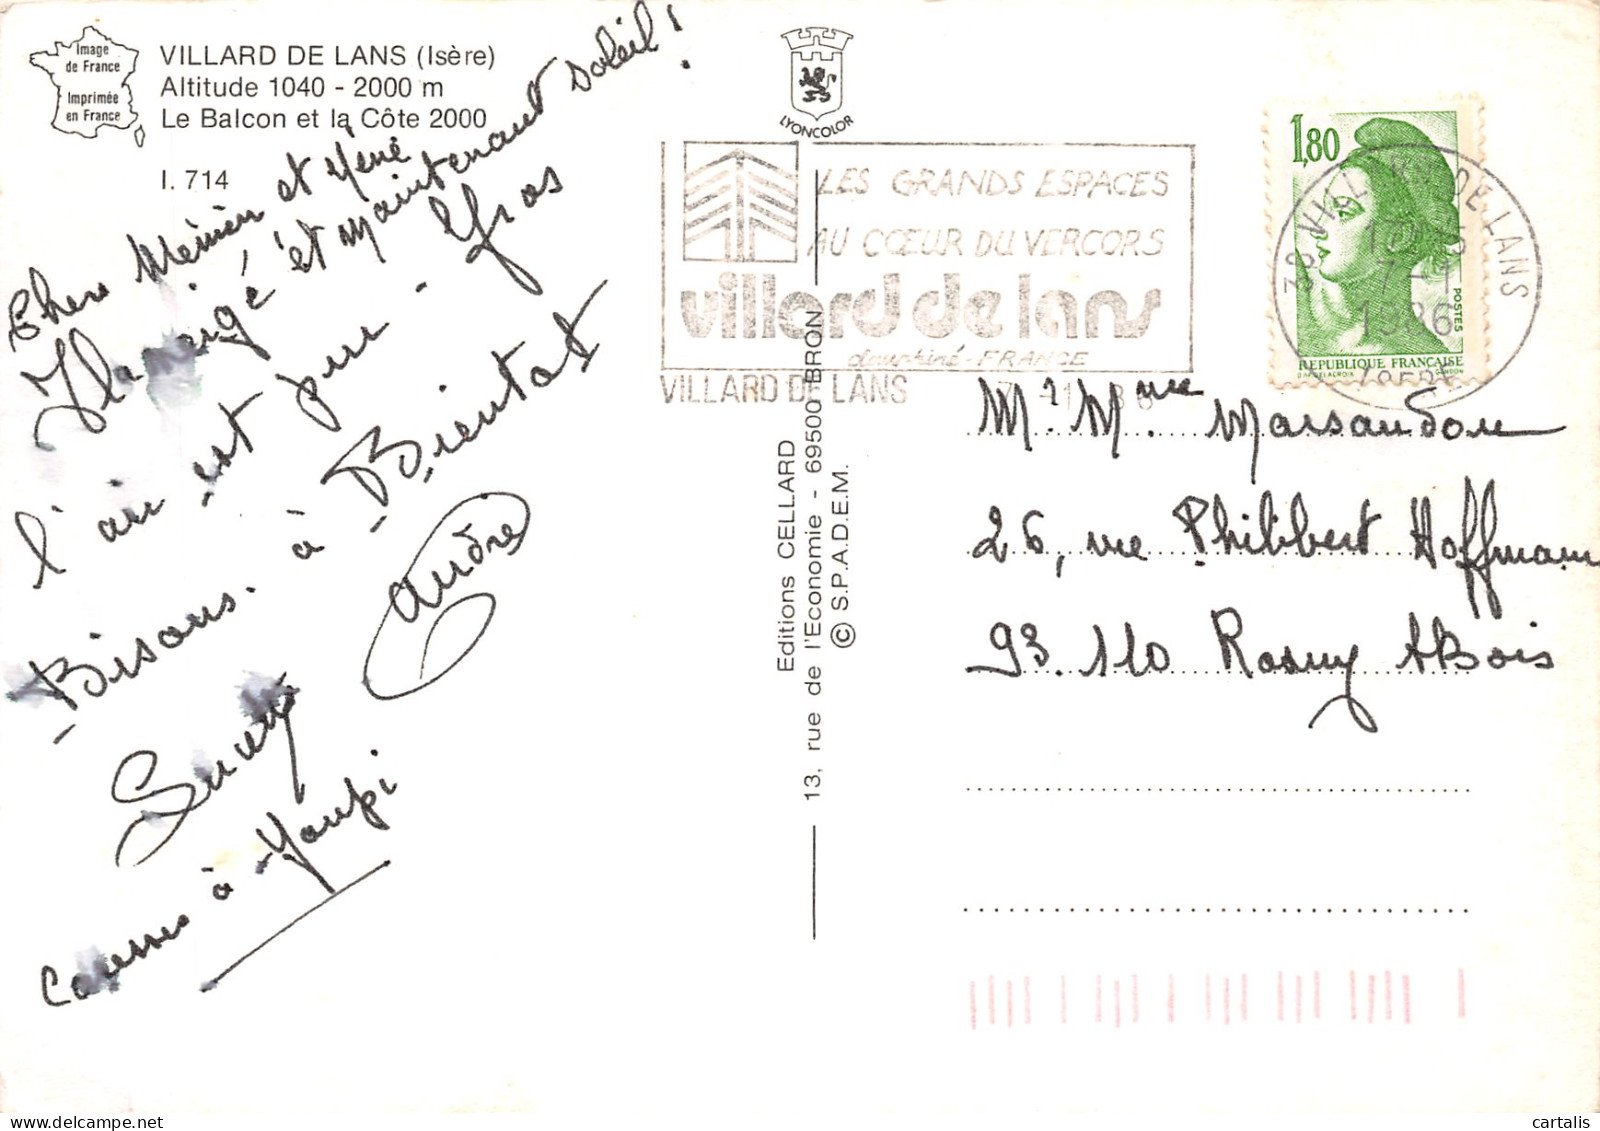 Image
de France
Imprimée
en France
VILLARD DE LANS (Isère)
Altitude 1040 - 2000 m
Le Balcon et la Côte 2000
I. 714
Chère Mémien et Mémé
Il a neigé et maintenant soleil !
l'air est pur. Gros
Bisous. à Bientot
André
Suzy
Caresses à Youpi
LYONCOLOR
LES GRANDS ESPACES
AU CŒUR DU VERCORS
villard de lans
dauphiné-FRANCE
VILLARD DE LANS
Editions CELLARD
13, rue de l'Economie - 69500 BRON
© S.P.A.D.E.M.
1,80
POSTES
REPUBLIQUE FRANÇAISE
D'AP. DELACROIX GANDON
38 VILLARD DE LANS
1986
Mr. Mme. Marsaudon
26, rue Philibbert Hoffmann
93.110 Rosny s/Bois
cartalis
delcampe.net